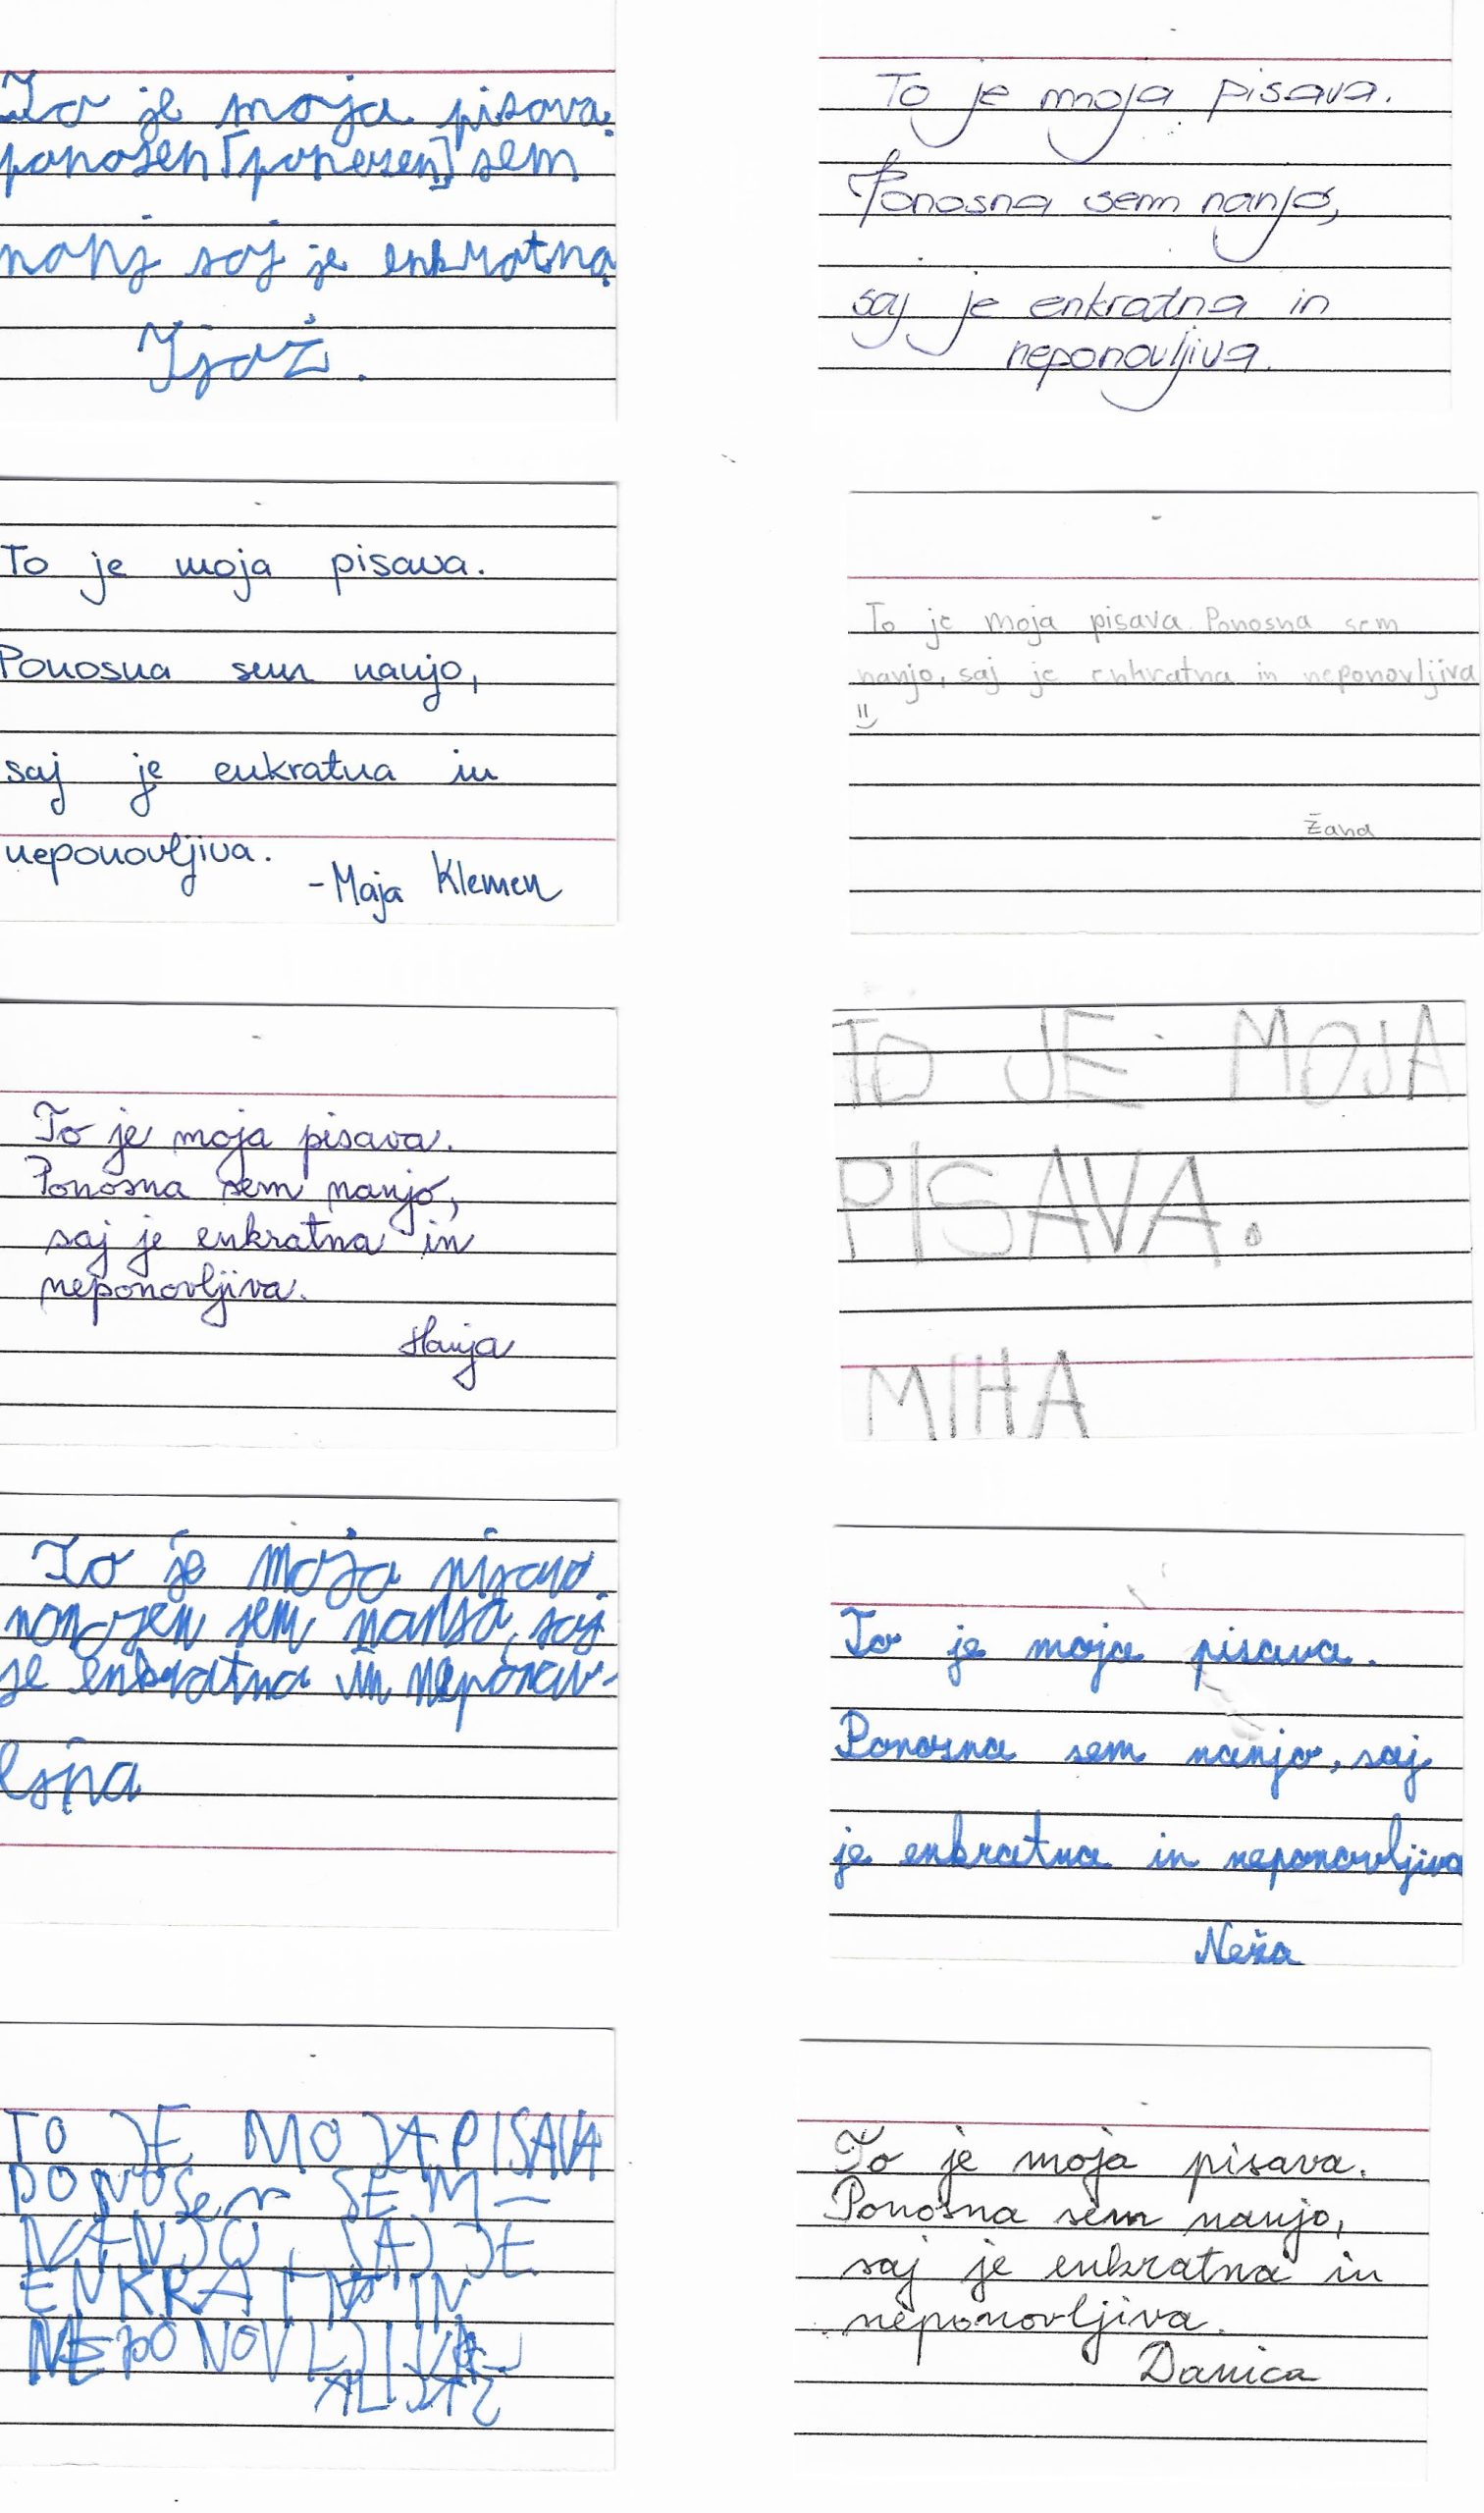 To je moja pisava.
ponosen [ponosen] sem
nanj saj je enkratna.
Tjaž.
To je moja pisava.
Ponosna sem nanjo,
saj je enkratna in
neponovljiva.
To je moja pisava.
Ponosna sem nanjo,
saj je enkratna in
neponovljiva.
-Maja Klemen
To je moja pisava. Ponosna sem
nanjo, saj je enkratna in neponovljiva
Žana
To je moja pisava.
Ponosna sem nanjo,
saj je enkratna in
neponovljiva.
Hanja
TO JE MOJA
PISAVA.
MIHA
To je moja pisava
ponosen sem nanjo, saj
je enkratna in neponov-
To je moja pisava.
Ponosna sem nanjo, saj
je enkratna in neponovljiva
Neža
TO JE MOJA PISAVA
PONOSEN SEM
NANJO, SAJ JE
ENKRATNA IN
NEPONOVLJIVA
To je moja pisava.
Ponosna sem nanjo,
saj je enkratna in
neponovljiva.
Danica